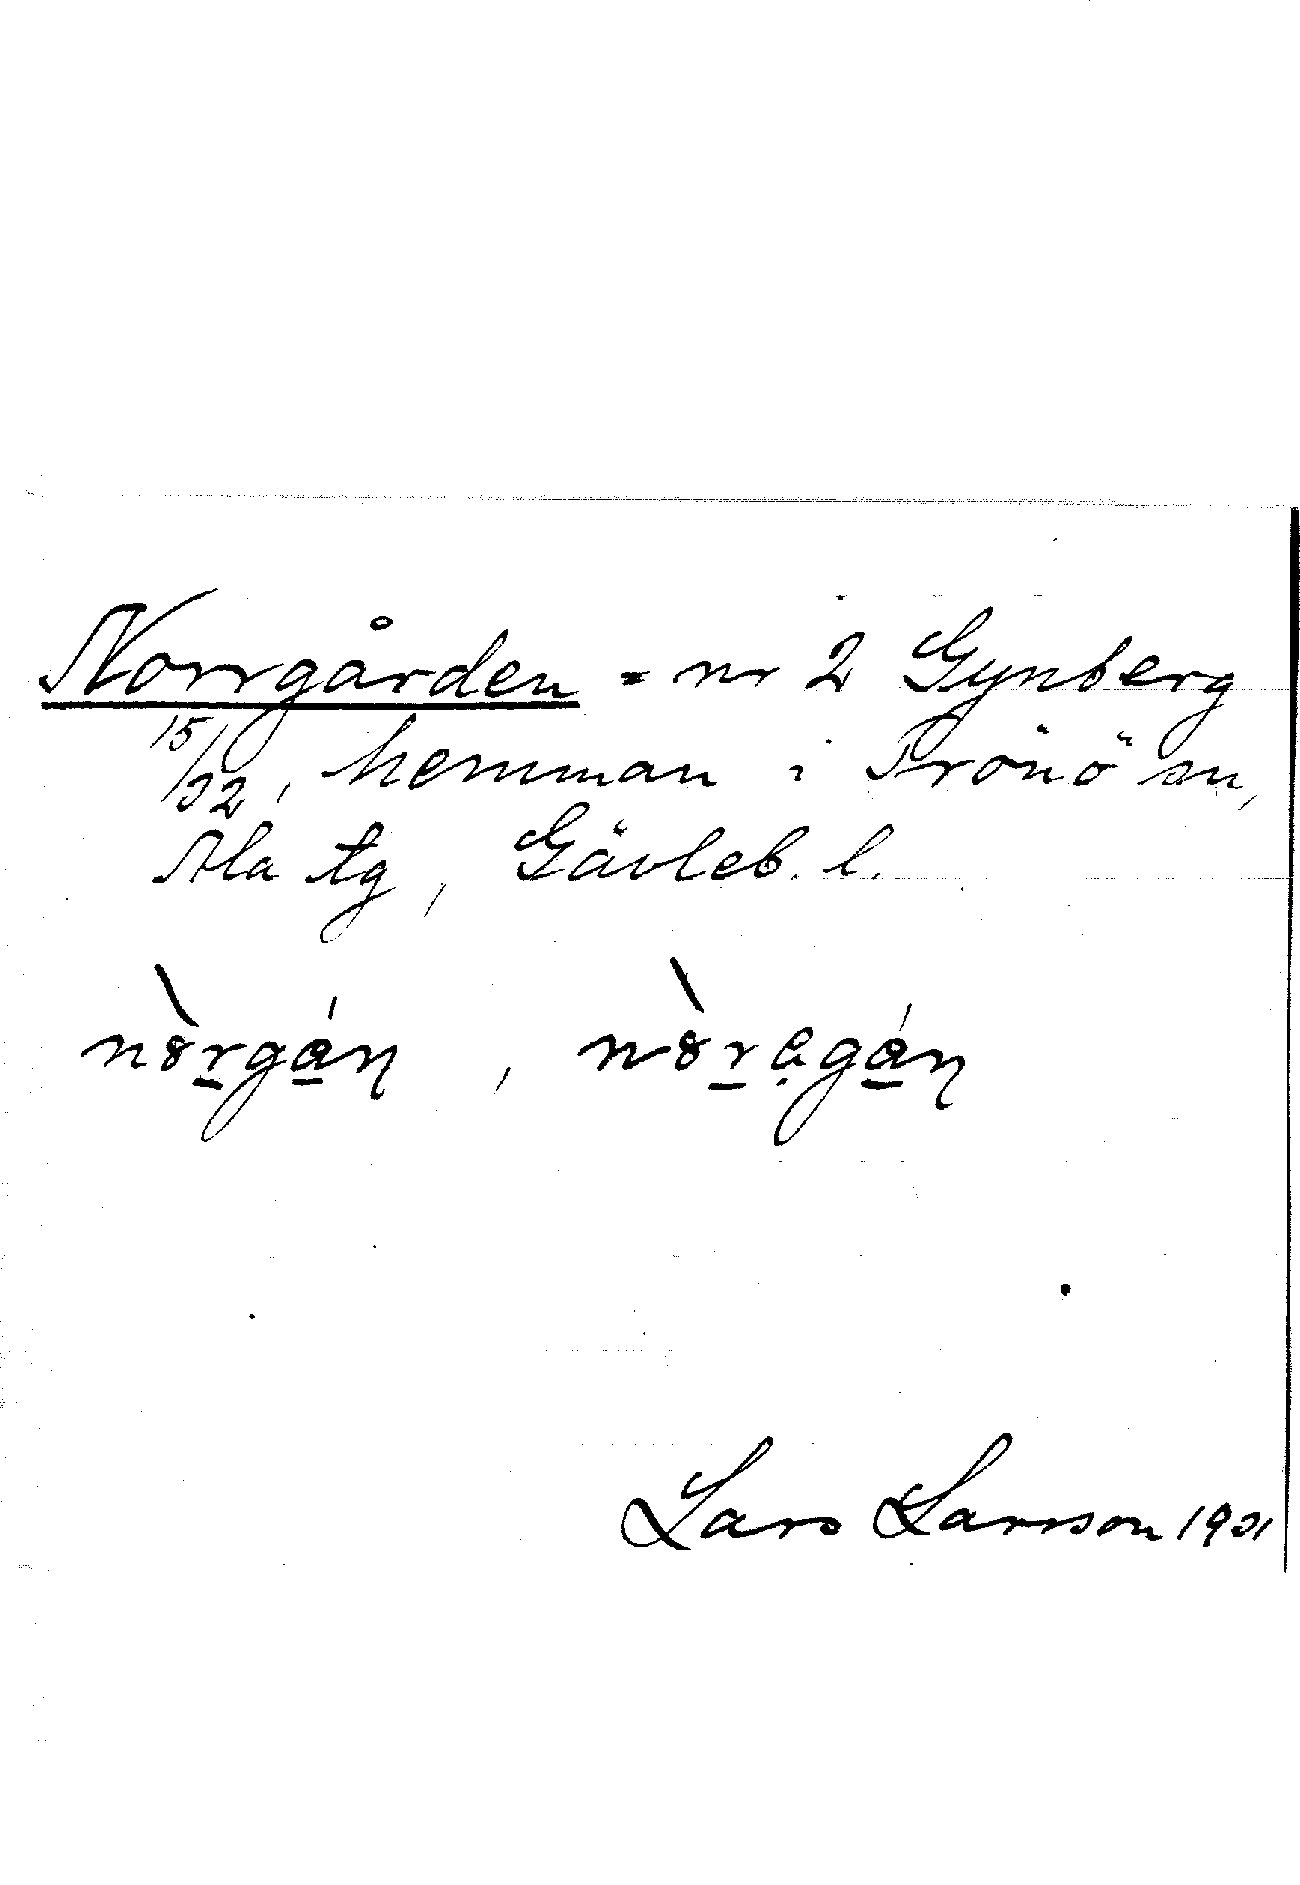 Norrgården = nr 2 Gynberg
15/32, hemman i Trönö sn,
Ala tg, Gävleb. l.
Lars Larsson 1931